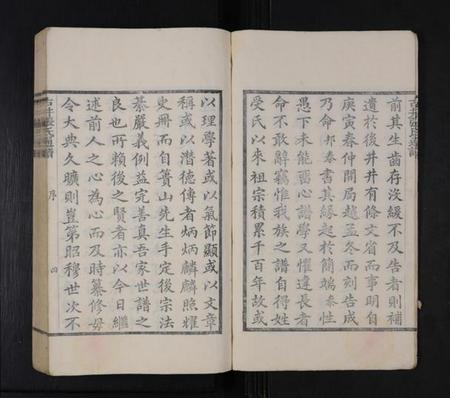 前其生齒存沒緩不及告者則補
遺於後井井有條文省而事明自
庚寅春仲開局越孟冬而刻告成
乃命邦泰書其緣起於簡端泰性
愚下未能悉心譜學又懼違長者
命不敢辭竊惟我族之譜自得姓
受氏以來祖宗積累千百年故或
以理學著或以氣節顯或以文章
稱或以潛德傳者炳炳麟麟照耀
史冊而自簣山先生手定後宗法
綦嚴義例益完善真吾家世譜之
良也所賴後之賢者亦以今日繼
述前人之心為心而及時纂修毋
令大典久曠則豈第昭穆世次不
序
四